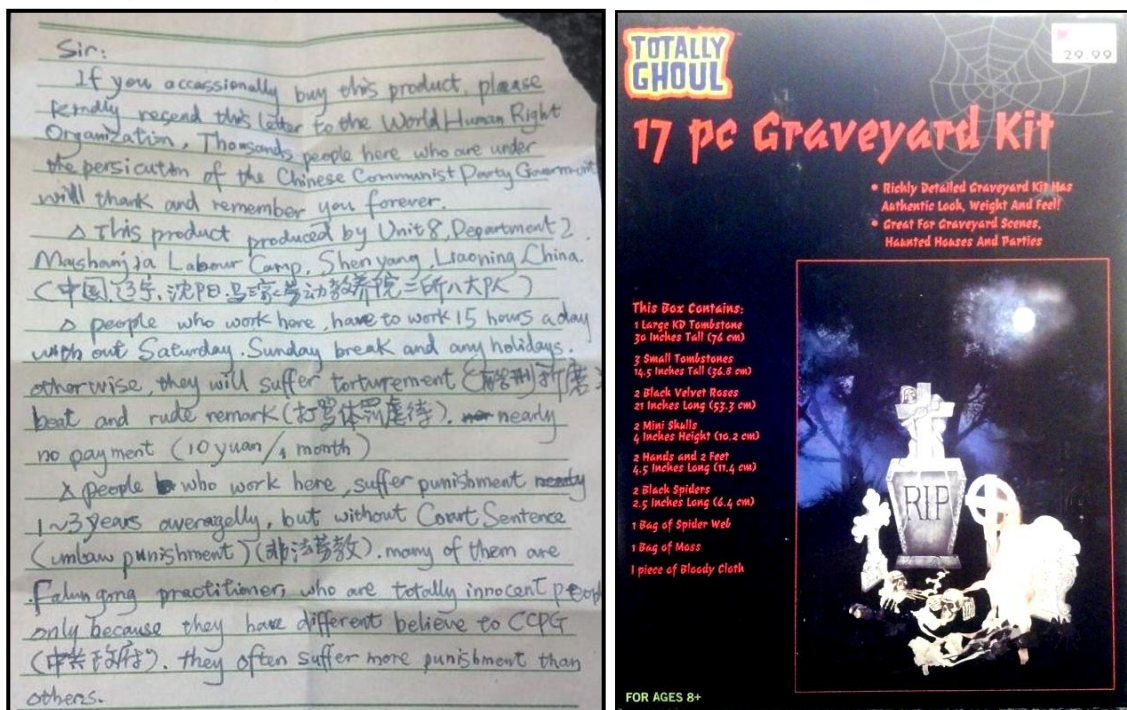 Sir:
If you occassionally buy this product, please
kindly resend this letter to the World Human Right
Organization. Thousands people here who are under
the persicution of the Chinese Communist Party Government
will thank and remember you forever.
△ This product produced by Unit 8, Department 2
Mashanjia Labour Camp, Shenyang, Liaoning, China.
(中国,辽宁,沈阳,马三家劳动教养院二所八大队)
△ people who work here, have to work 15 hours a day
with out Saturday, Sunday break and any holidays.
otherwise, they will suffer torturement (酷刑折磨)
beat and rude remark (打骂体罚虐待). nearly
no payment (10 yuan/1 month)
△ people who work here, suffer punishment
1~3 years averagelly, but without Court Sentence
(unlaw punishment) (非法劳教). many of them are
Falun gong practitioner, who are totally innocent people
only because they have different believe to CCPG
(中共政府). they often suffer more punishment than
others.
TOTALLY
GHOUL
29.99
17 pc Graveyard Kit
• Richly Detailed Graveyard Kit Has
Authentic Look, Weight And Feel!
• Great For Graveyard Scenes,
Haunted Houses And Parties
This Box Contains:
1 Large KD Tombstone
30 Inches Tall (76 cm)
3 Small Tombstones
14.5 Inches Tall (36.8 cm)
2 Black Velvet Roses
21 Inches Long (53.3 cm)
2 Mini Skulls
4 Inches Height (10.2 cm)
2 Hands and 2 Feet
4.5 Inches Long (11.4 cm)
2 Black Spiders
2.5 Inches Long (6.4 cm)
1 Bag of Spider Web
1 Bag of Moss
1 piece of Bloody Cloth
RIP
FOR AGES 8+